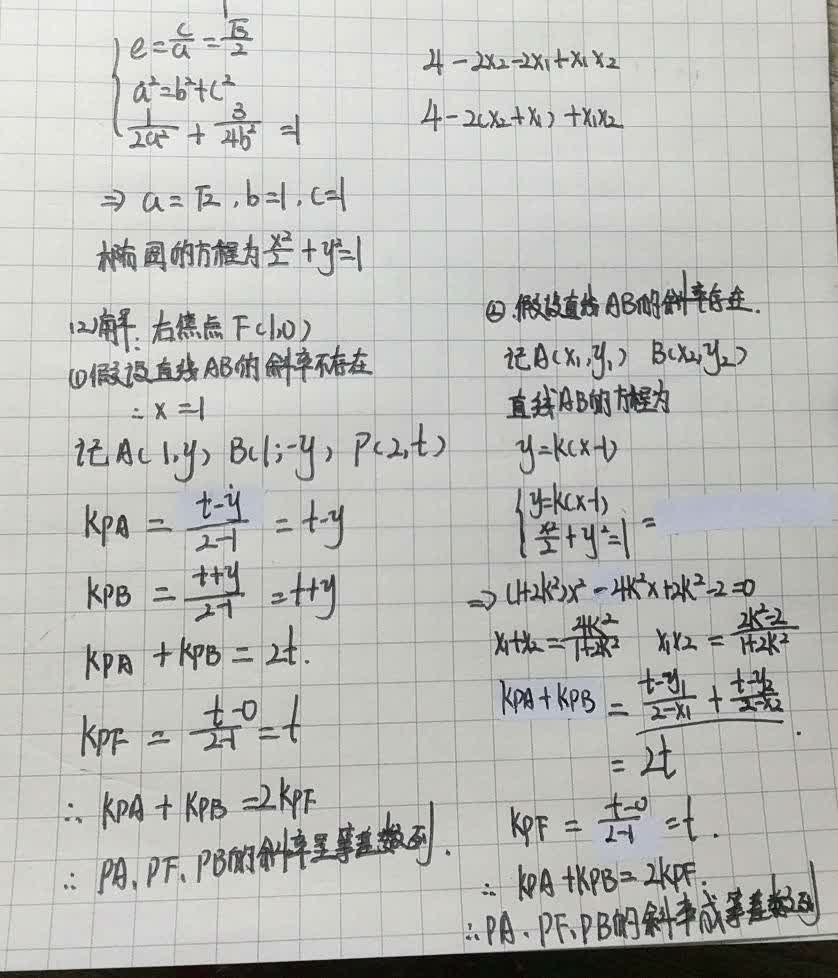 e=c/a=√3/2
a²=b²+c²
1/2a²+3/4b²=1
⇒ a=√2, b=1, c=1
椭圆的方程为x²/2+y²=1
(2)解:右焦点F(1,0)
①假设直线AB的斜率不存在
∴x=1
记A(1,y) B(1,-y), P(2,t)
KPA=(t-y)/(2-1)=t-y
KPB=(t+y)/(2-1)=t+y
KPA+KPB=2t.
KPF=(t-0)/(2-1)=t
∴KPA+KPB=2KPF
∴PA、PF、PB的斜率呈等差数列.
4-2x2-2x1+x1x2
4-2(x2+x1)+x1x2
②.假设直线AB的斜率存在.
记A(x1,y1) B(x2,y2)
直线AB的方程为
y=k(x-1)
y=k(x-1)
x²/2+y²=1 =
⇒(1+2k²)x²-4k²x+2k²-2=0
x1+x2=4k²/1+2k² x1x2=2k²-2/1+2k²
KPA+KPB=(t-y1)/(2-x1)+(t-y2)/(2-x2).
=2t
KPF=(t-0)/(2-1)=t.
∴KPA+KPB=2KPF.
∴PA、PF、PB的斜率成等差数列